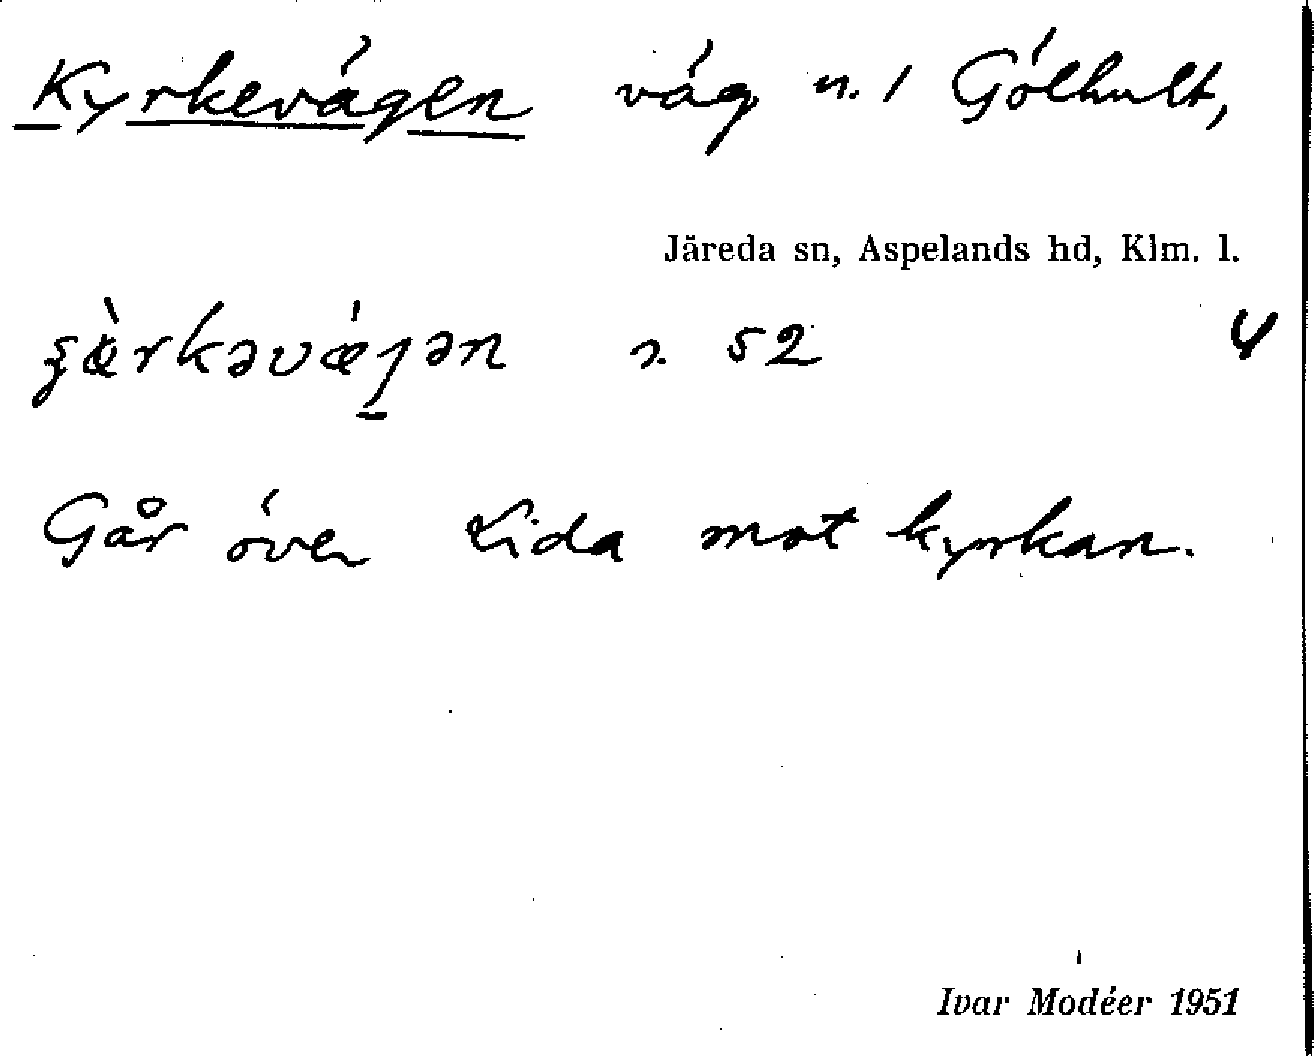 Kyrkevägen väg n. 1 Gölhult,
Järeda sn, Aspelands hd, Klm. l.
n. 52 4
Går över Lida mot kyrkan.
Ivar Modéer 1951